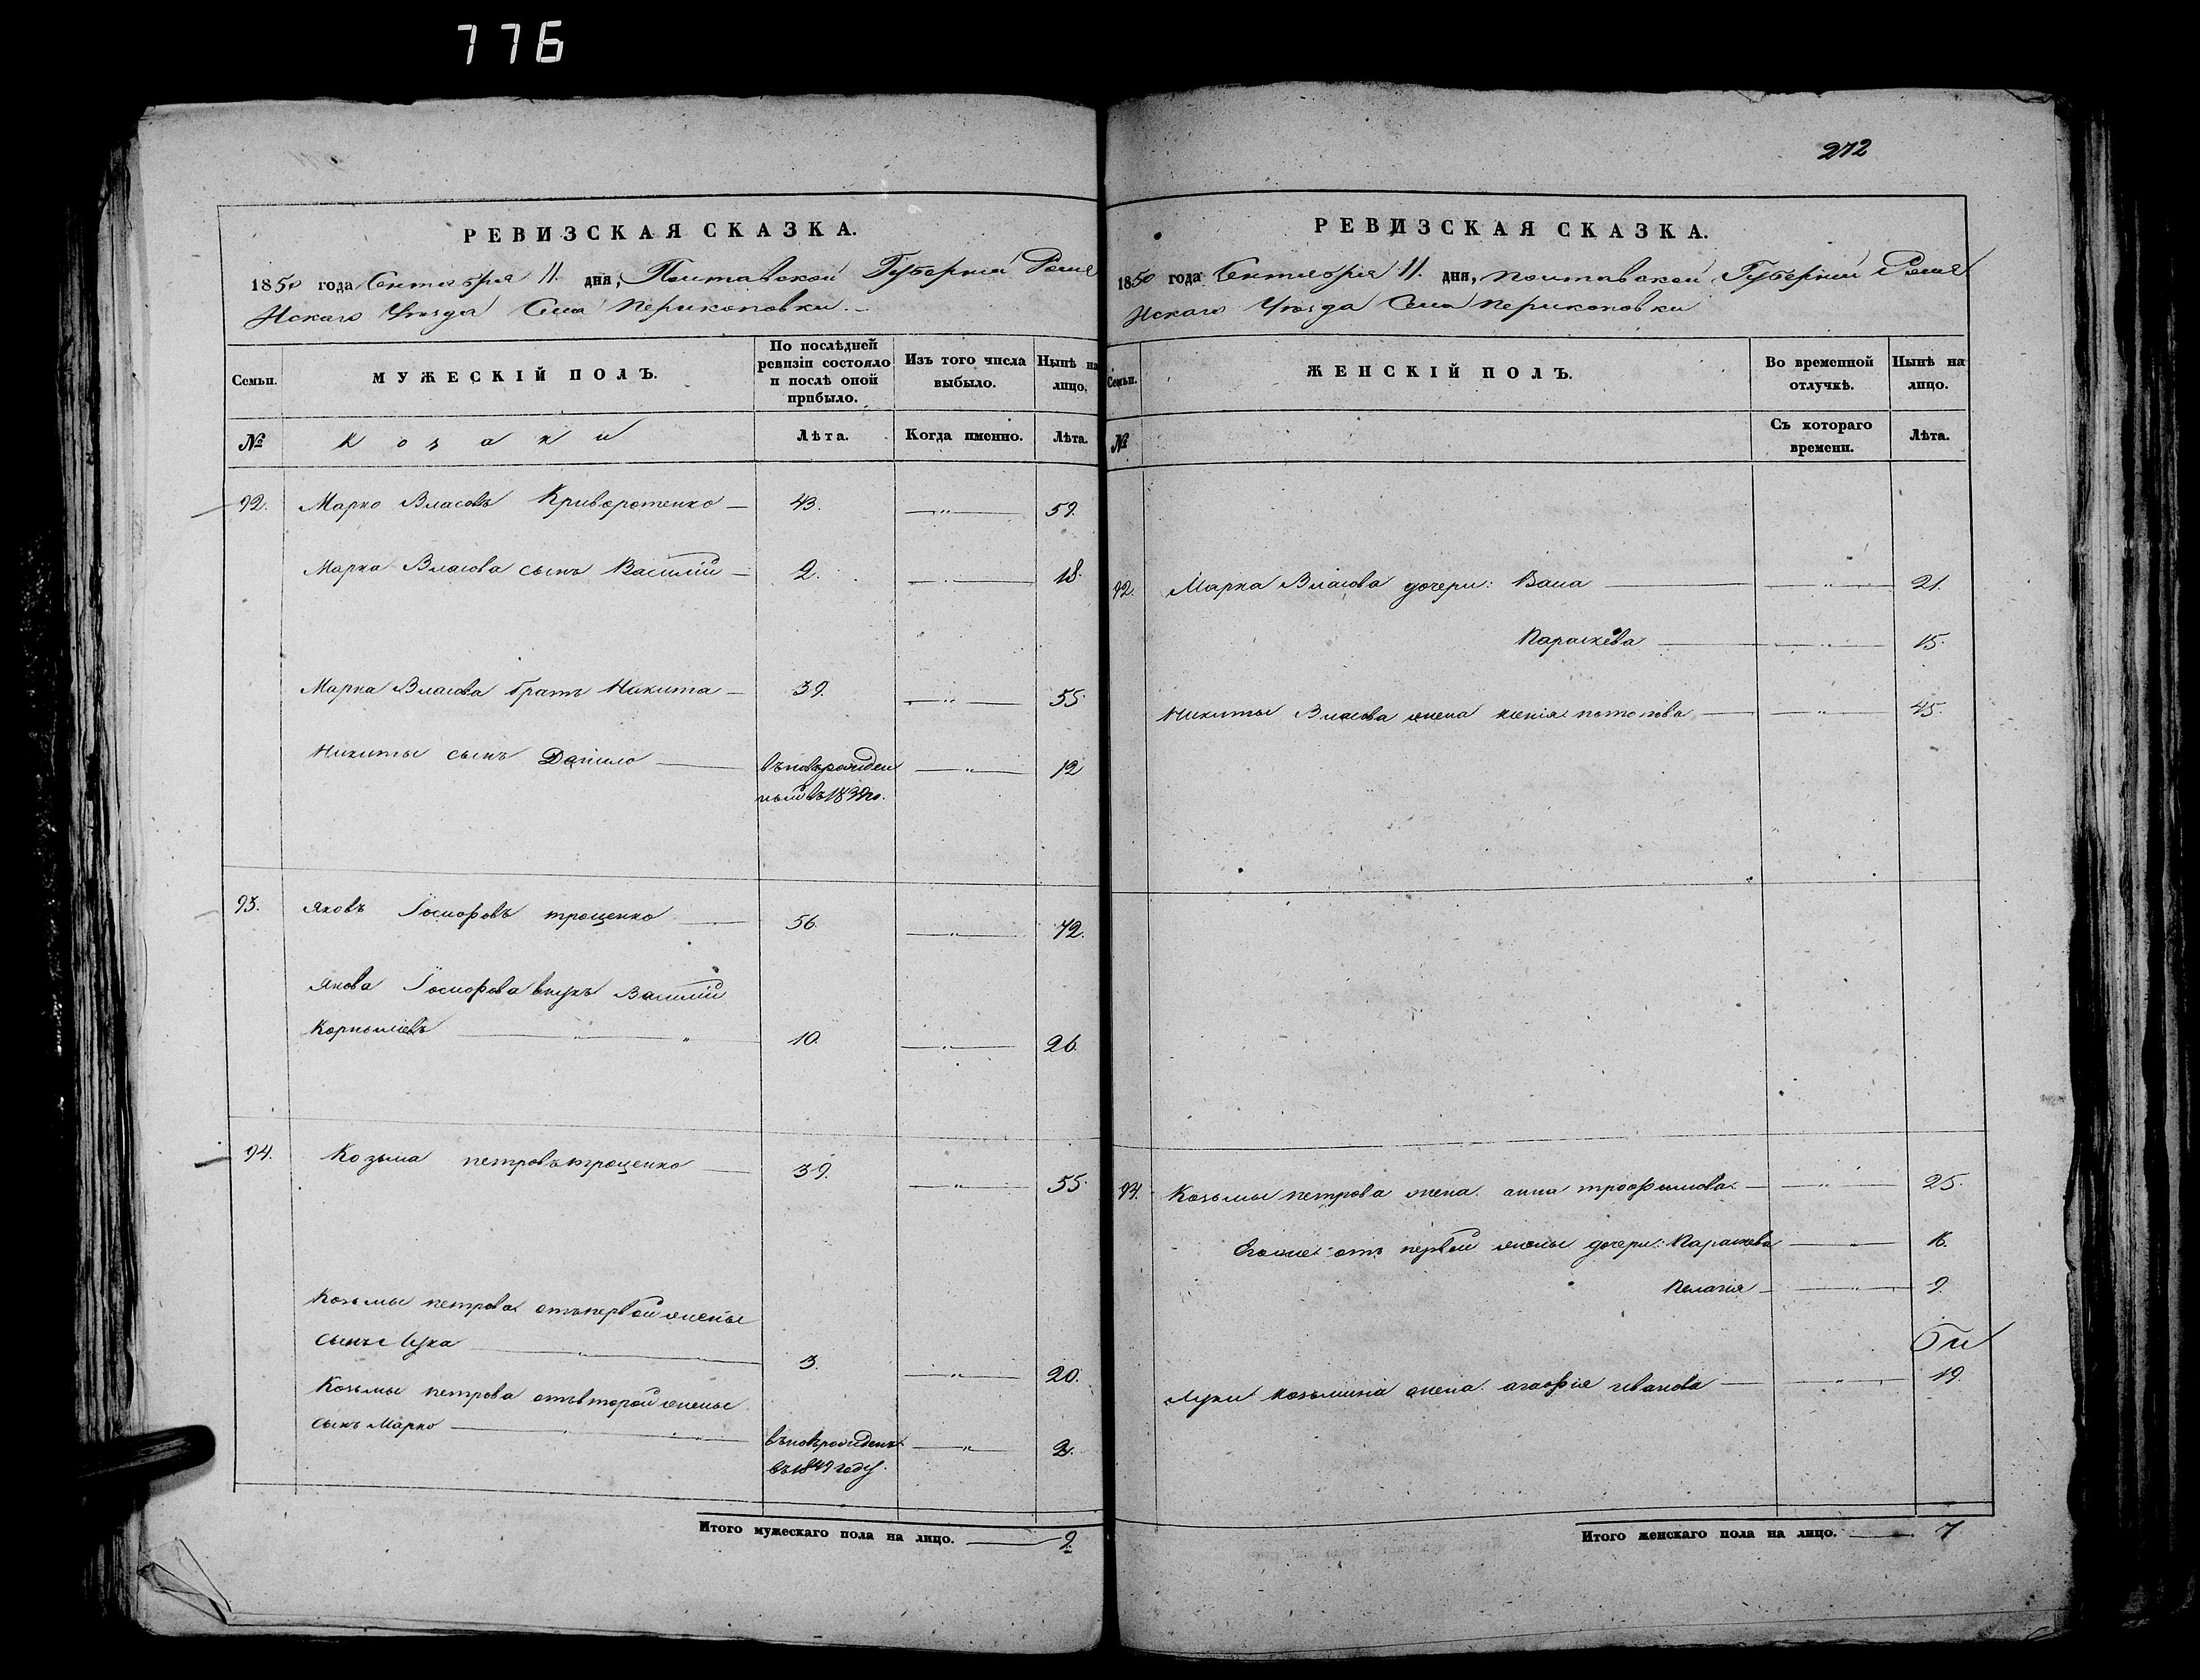 776
РЕВИЗСКАЯ СКАЗКА.
1850 года Сентября 11. дня, Полтавской Губерніи Роме
нскаго Уѣзда Села Перикоповки.
Семьи.
МУЖЕСКІЙ ПОЛЪ.
По послѣдней ревизіи состояло и послѣ оной прибыло.
Изъ того числа выбыло.
Нынѣ на лицо.
№
Козаки
Лѣта.
Когда именно.
Лѣта.
92. Марко Власовъ Криворотенко — 43. —"— 59.
Марка Власова сынъ Василій — 2. —"— 18.
Марка Власова братъ Никита — 39. —"— 55.
Никиты сынъ Данило — вновьрожден —"— 12
ный въ 1839 го.
93. Яковъ Іосифовъ троценко — 56. —"— 72.
Якова Іосифова внукъ Василій
Корныліевъ — " — " 10. —"— 26.
94. Козьма петровъ троценко — 39. —"— 55.
Козьмы петрова отъ первой жены
сынъ Лука — " — 3. —"— 20.
Козьмы петрова отъ второй жены
сынъ Марко — " — " вновьрожденъ —"— 2.
въ 1849 году.
Итого мужескаго пола на лицо. — 9.
272
РЕВИЗСКАЯ СКАЗКА.
1850 года Сентября 11. дня, полтавской Губерніи Роме
нскаго Уѣзда Села перикоповки
Семьи.
ЖЕНСКІЙ ПОЛЪ.
Во временной отлучкѣ.
Нынѣ на лицо.
№
Съ котораго времени.
Лѣта.
92. Марка Власова дочери: Васа — —"— 21.
Параскева — —"— 15.
Никиты Власова жена ксенія потапова — —"— 45.
94. Козьмы петрова жена. анна трофимова — —"— 25.
Егоже отъ первой жены дочери: Параскева — — 16.
Пелагія — —"— 9.
Луки козьмина жена. агафія иванова — —"— 19.
Итого женскаго пола на лицо. — 7